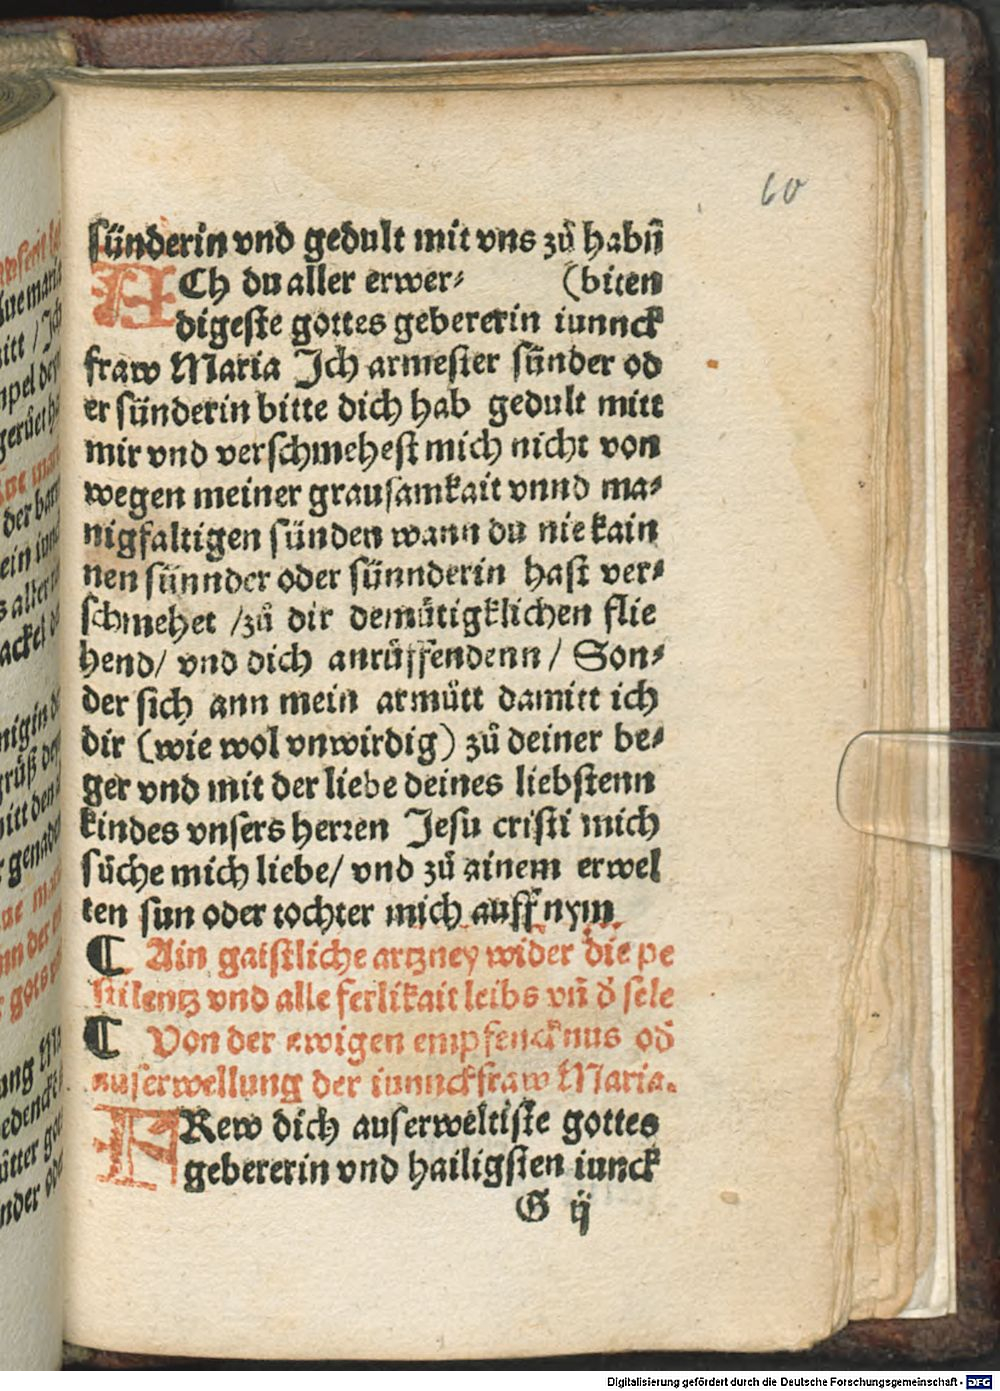 60
sünderin vnd gedult mit vns zů habñ
ACh du aller erwer⸗ (biten
digeste gottes gebererin iunnck
fraw Maria Jch armester sünder od
er sünderin bitte dich hab gedult mitt
mir vnd verschmehest mich nicht von
wegen meiner grausamkait vnnd ma⸗
nigfaltigen sünden wann du nie kain
nen sünnder oder sünnderin hast ver⸗
schmehet /zů dir demütigklichen flie
hend/ vnd dich anrüffendenn / Son⸗
der sich ann mein armütt damitt ich
dir (wie wol vnwirdig) zů deiner be⸗
ger vnd mit der liebe deines liebstenn
kindes vnsers herren Jesu cristi mich
süche mich liebe/ vnd zů ainem erwel
ten sun oder tochter mich auff nym
¶ Ain gaistliche artzney wider die pe
stilentz vnd alle ferlikait leibs vñ d̄ sele
¶ Von der ewigen empfencknus od̄
auserwellung der iunnckfraw Maria.
FRew dich auserweltiste gottes
gebererin vnd hailigsten iunck
G ij
Digitalisierung gefördert durch die Deutsche Forschungsgemeinschaft - DFG